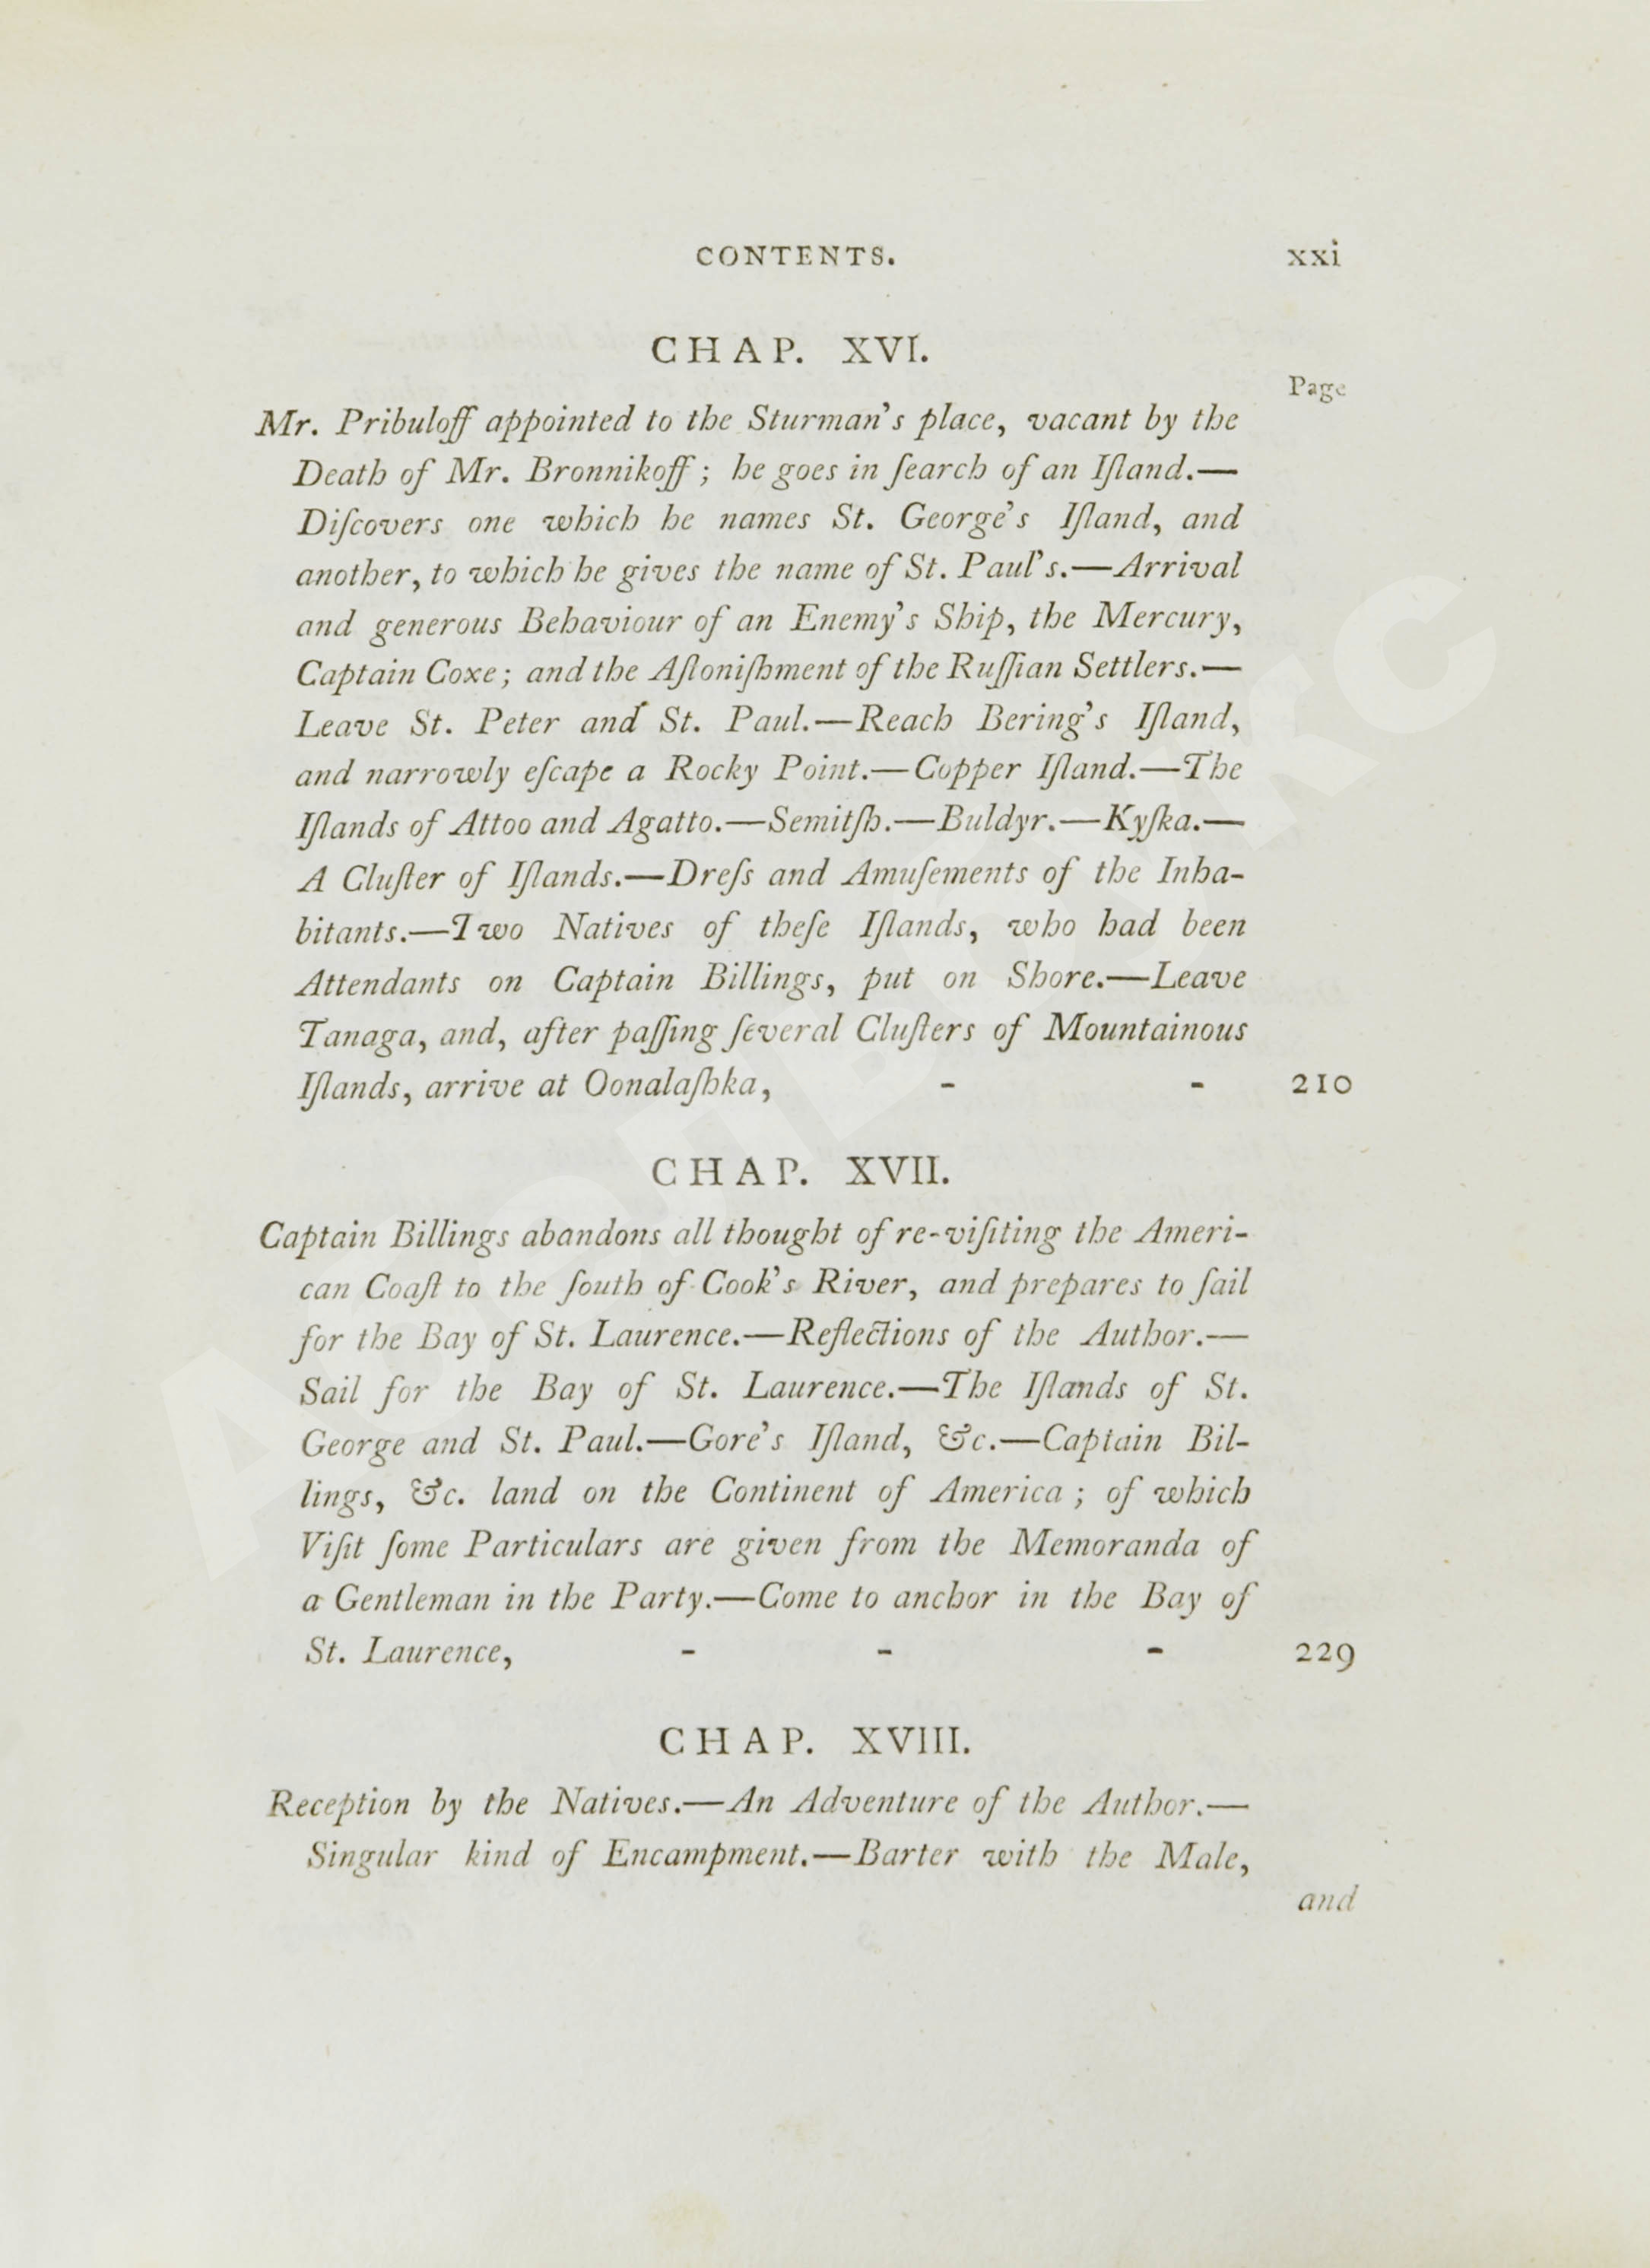 CONTENTS. xxi
CHAP. XVI.
Page
Mr. Pribuloff appointed to the Sturman's place, vacant by the
Death of Mr. Bronnikoff; he goes in ſearch of an Iſland.—
Diſcovers one which he names St. George's Iſland, and
another, to which he gives the name of St. Paul's.—Arrival
and generous Behaviour of an Enemy's Ship, the Mercury,
Captain Coxe; and the Aſtoniſhment of the Ruſſian Settlers.—
Leave St. Peter and St. Paul.—Reach Bering's Iſland,
and narrowly eſcape a Rocky Point.—Copper Iſland.—The
Iſlands of Attoo and Agatto.—Semitſh.—Buldyr.—Kyſka.—
A Cluſter of Iſlands.—Dreſs and Amuſements of the Inha-
bitants.—Two Natives of theſe Iſlands, who had been
Attendants on Captain Billings, put on Shore.—Leave
Tanaga, and, after paſſing ſeveral Cluſters of Mountainous
Iſlands, arrive at Oonalaſhka, - - 210
CHAP. XVII.
Captain Billings abandons all thought of re-viſiting the Ameri-
can Coaſt to the ſouth of Cook's River, and prepares to ſail
for the Bay of St. Laurence.—Reflections of the Author.—
Sail for the Bay of St. Laurence.—The Iſlands of St.
George and St. Paul.—Gore's Iſland, &c.—Captain Bil-
lings, &c. land on the Continent of America; of which
Viſit ſome Particulars are given from the Memoranda of
a Gentleman in the Party.—Come to anchor in the Bay of
St. Laurence, - - - 229
CHAP. XVIII.
Reception by the Natives.—An Adventure of the Author.—
Singular kind of Encampment.—Barter with the Male,
and